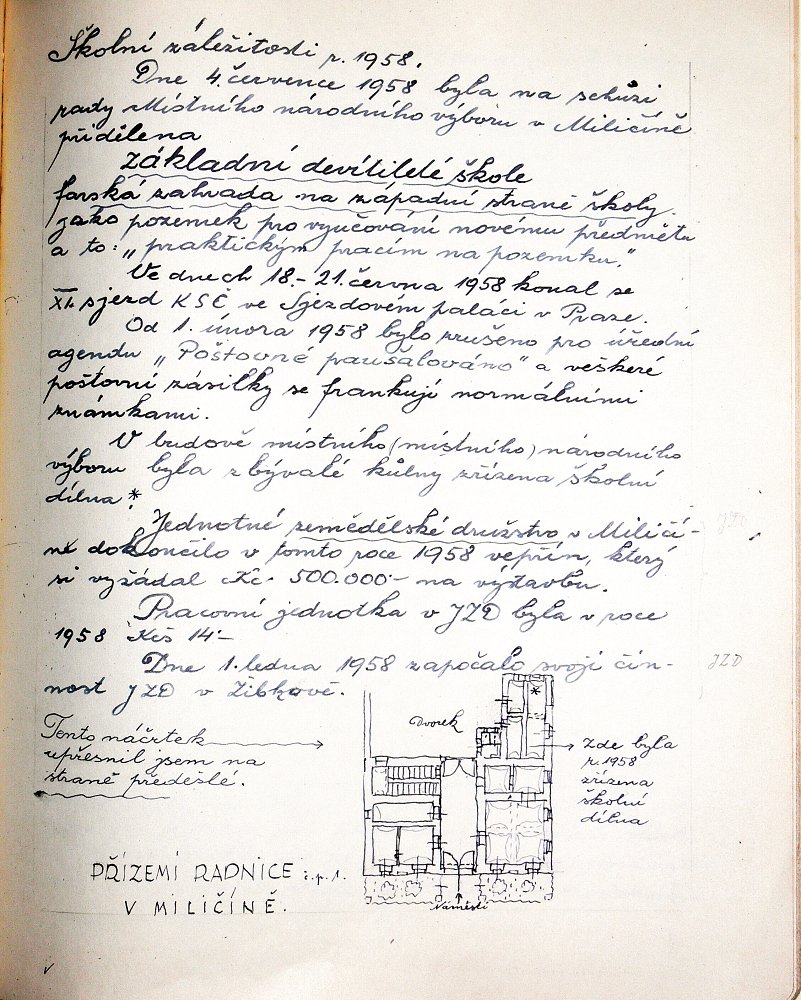 Školní záležitosti r. 1958.
Dne 4. července 1958 byla na schůzi
rady Místního národního výboru v Miličíně
přidělena
základní devítileté škole
farská zahrada na západní straně školy.
jako pozemek pro vyučování novému předmětu
a to: „praktickým pracím na pozemku."
Ve dnech 18.- 21. června 1958 konal se
XI. sjezd KSČ ve Sjezdovém paláci v Praze.
Od 1. února 1958 bylo zrušeno pro úřední
agendu „Poštovné paušalováno" a veškeré
poštovní zásilky se frankují normálními
známkami.
V budově místního (místního) národního
výboru byla z bývalé kůlny zřízena školní
dílna.*
Jednotné zemědělské družstvo v Miličí-
JZD
ně dokončilo v tomto roce 1958 vepřín, který
si vyžádal Kč- 500.000·- na výstavbu.
Pracovní jednotka v JZD byla v roce
1958 Kčs 14·-
Dne 1. ledna 1958 započalo svoji čin-
JZD
nost JZD v Žibkově.
Tento náčrtek
upřesnil jsem na
straně předešlé.
Dvorek
*
Zde byla
r. 1958
zřízena
školní
dílna
PŘÍZEMÍ RADNICE č.p. 1.
V MILIČÍNĚ.
Náměstí